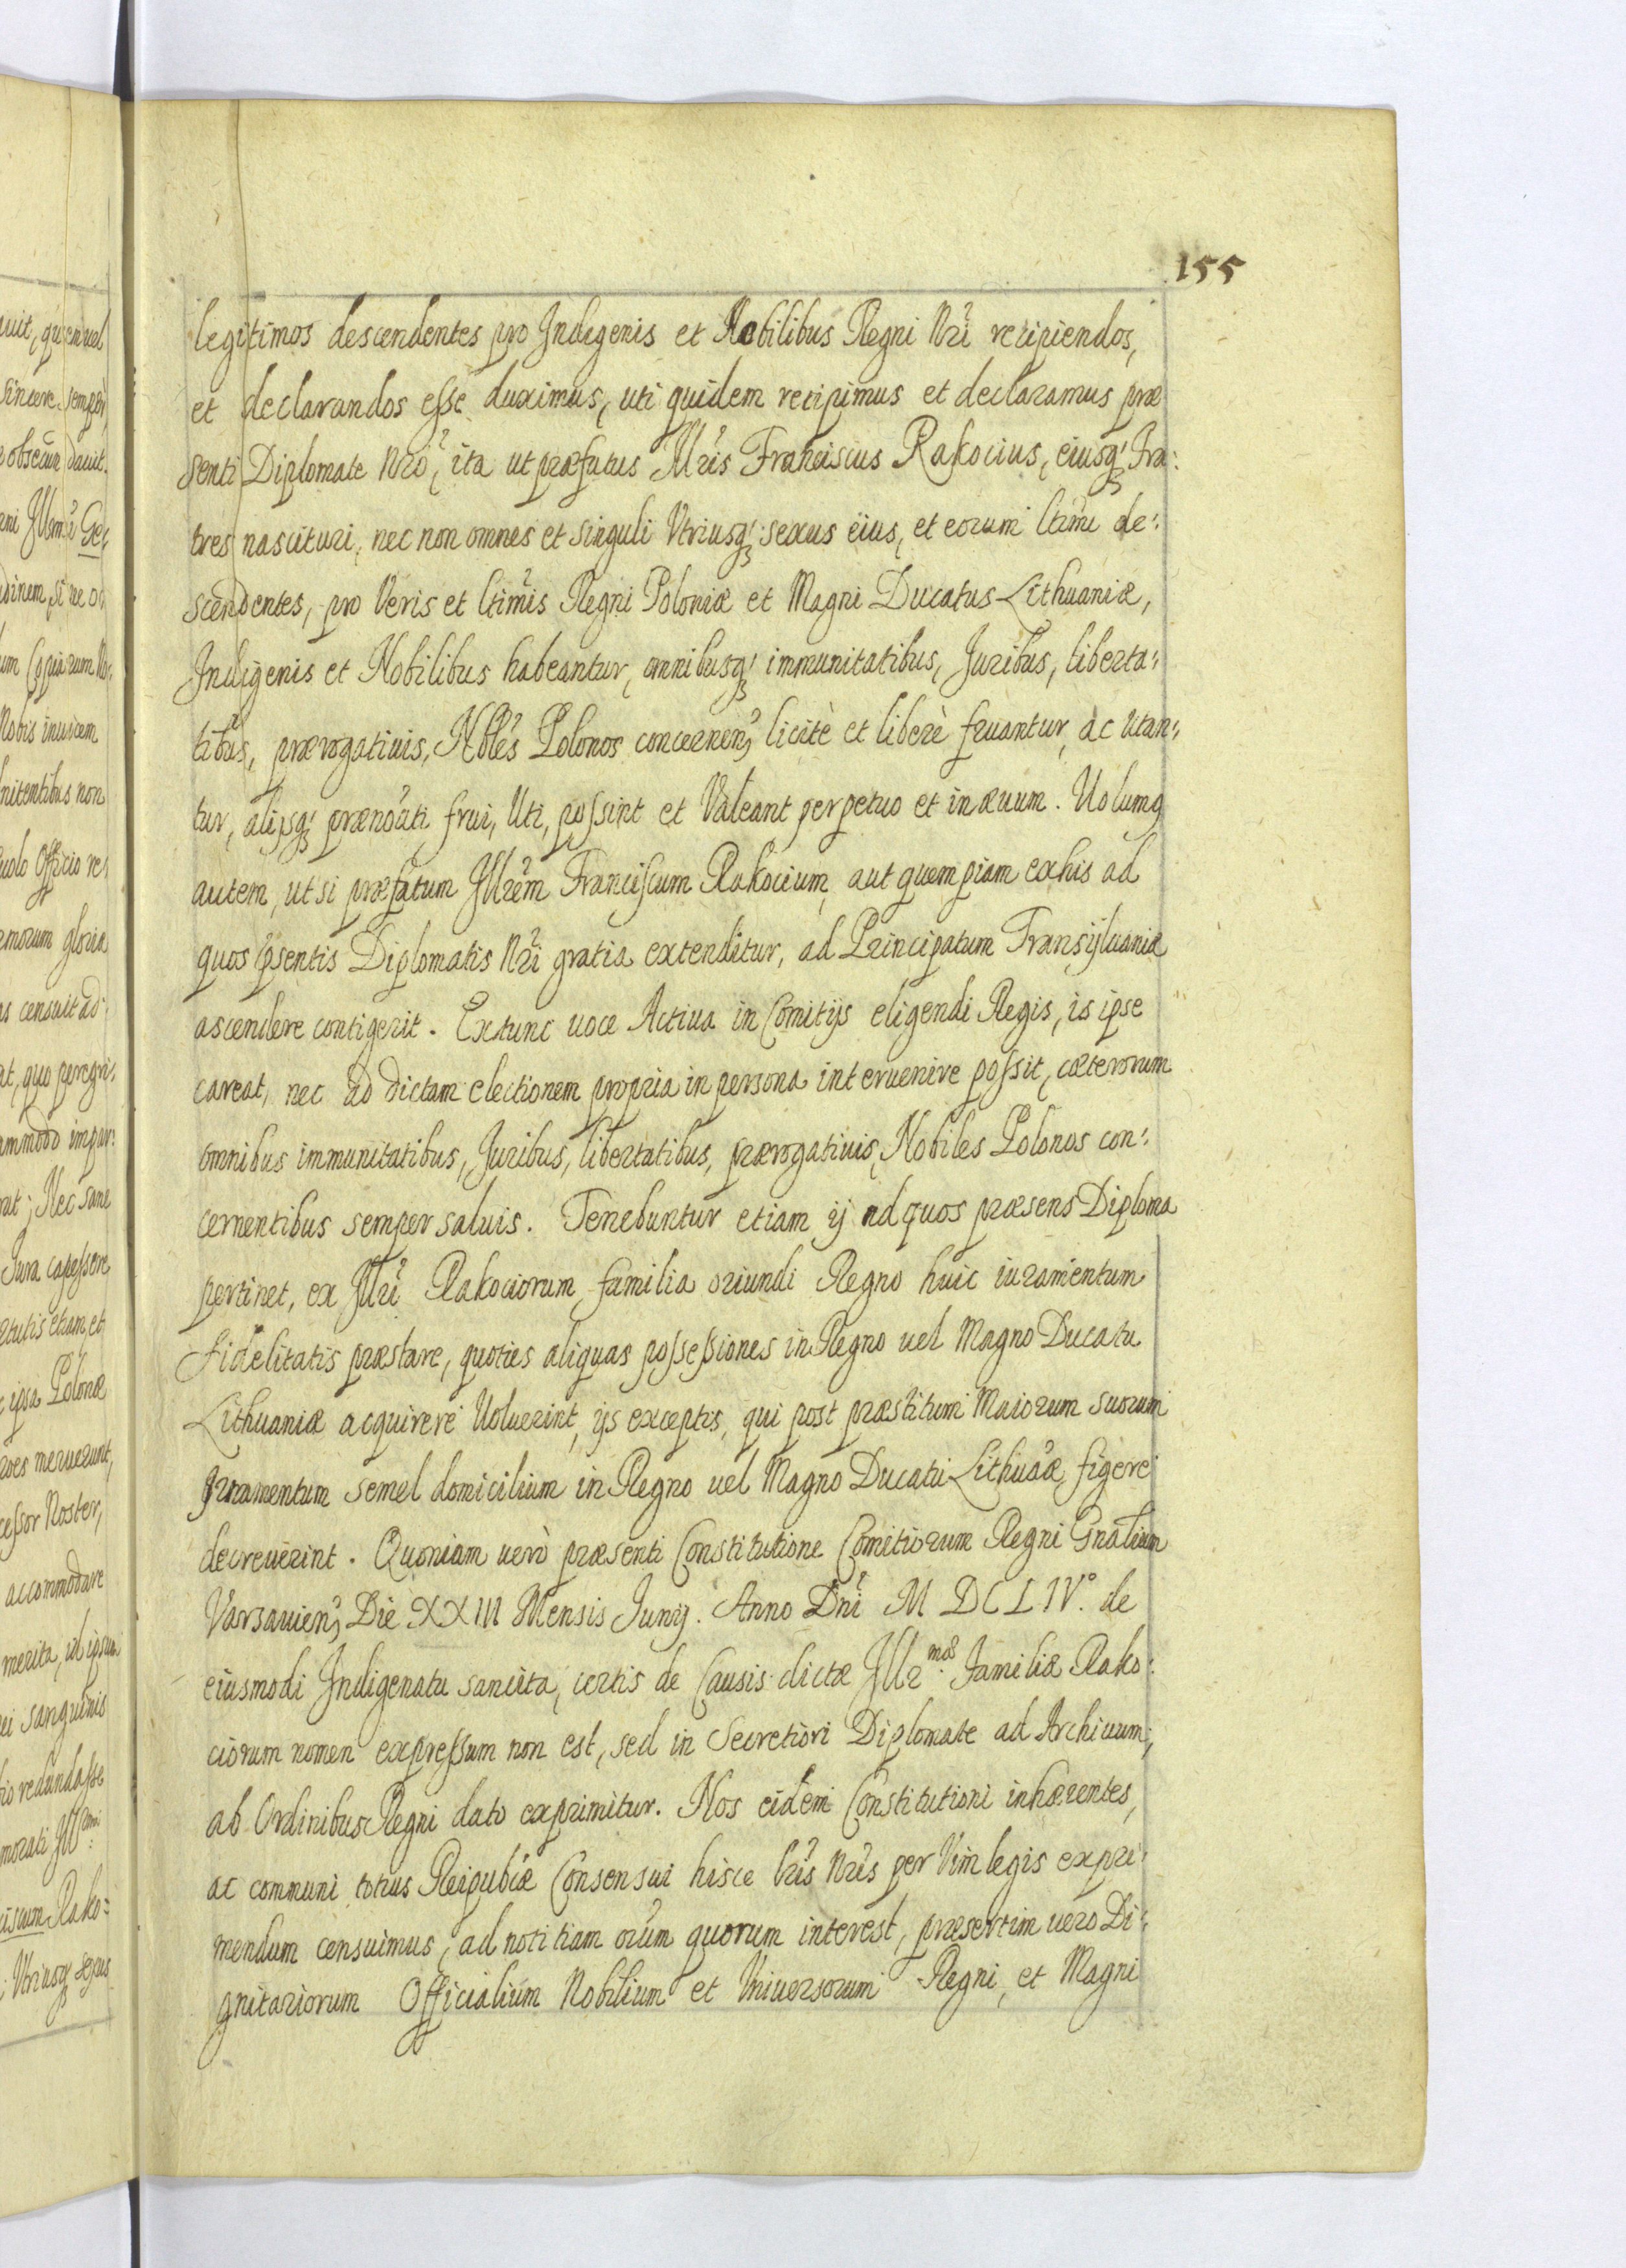 155
legitimos descendentes pro Indigenis et Nobilibus Regni Nri recipiendos,
et declarandos esse duximus, uti quidem recipimus et declaramus præ
senti Diplomate Nro, ita ut præfatus Illris Franciscus Rakocius, eiusq; Fra:
tres nascituri, nec non omnes et singuli Vtriusq; sexus eius, et eorum ltimi de:
scendentes, pro Veris et ltimis Regni Poloniæ et Magni Ducatus Lithuaniæ,
Indigenis et Nobilibus habeantur, omnibusq; immunitatibus, Juribus, liberta:
tibus, prærogatiuis, Nobles Polonos concernen; licitè et liberè fruantur, ac Utan:
tur, alijsq; prænoati frui, Uti, possint et Valeant perpetuo et in æuum. Uolumq
autem, ut si præfatum Illrem Franciscum Rakocium, aut quempiam ex his ad
quos psentis Diplomatis Nri gratia extenditur, ad Principatum Transyluaniæ
ascendere contigerit. Extunc uoce Actiua in Comitijs eligendi Regis, is ipse
careat, nec ad dictam electionem propria in persona interuenire possit, cæterorum
omnibus immunitatibus, Juribus, libertatibus, prærogatiuis, Nobiles Polonos con:
cernentibus semper saluis. Tenebuntur etiam ij ad quos præsens Diploma
pertinet, ex Illri Rakociorum familia oriundi Regno huic iuramentum
fidelitatis præstare, quoties aliquas possessiones in Regno uel Magno Ducatu
Lithuaniæ acquirere Uoluerint, ijs exceptis, qui post præstitum Maiorum suorum
Juramentum semel domicilium in Regno uel Magno Ducatu Lithuaæ figere
decreuerint. Quoniam uerò præsenti Constitutione Comitiorum Regni Gnalium
Varsauien; Die XXIII Mensis Junij. Anno Dni M DC LIV.º de
eiusmodi Indigenatu sancita, certis de Causis dictæ Illr.mæ Familiæ Rako:
ciorum nomen expressum non est, sed in Secretiori Diplomate ad Archiuum,
ab Ordinibus Regni dato exprimitur. Nos eidem Constitutioni inhærentes,
ac communi totius Reipubcæ Consensui hisce lris Nris per Vim legis expri:
mendum censuimus, ad notitiam oium quorum interest, præsertim uero Di:
gnitariorum Officialium Nobilium et Vniuersorum Regni, et Magni